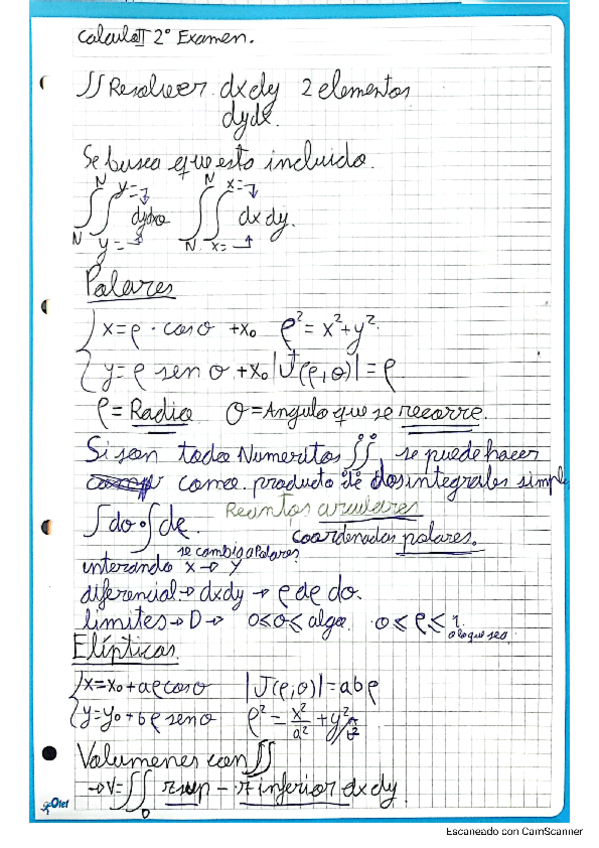 Calculo II 2º Examen.
∫∫ Resolver. dxdy 2 elementos
dydx.
Se busca que esto incluido.
∫_N^N ∫_{y=}^{y=} dydx ∫_N^N ∫_{x=}^{x=} dx dy.
Polares
{ x = ρ · cos θ + x₀ ρ² = x² + y²
{ y = ρ sen θ + x₀ |J(ρ, θ)| = ρ
ρ = Radio θ = Angulo que se recorre.
Si son todo Numeritos ∫∫, se puede hacer
como producto de dos integrales simple
∫dθ · ∫de. Recintos circulares
coordenadas polares.
se cambia a Polares
interando x → y
diferencial → dxdy → ρ dρ dθ.
limites → D → 0 ≤ θ ≤ algo. 0 ≤ ρ ≤ 1 o lo que sea.
Elípticas
{ x = x₀ + aρ cos θ |J(ρ, θ)| = abρ
{ y = y₀ + bρ sen θ ρ² = x²/a² + y²/b²
Volumenes con ∫∫
→ V = ∫∫_D z sup - z inferior dx dy
Oxford
Escaneado con CamScanner